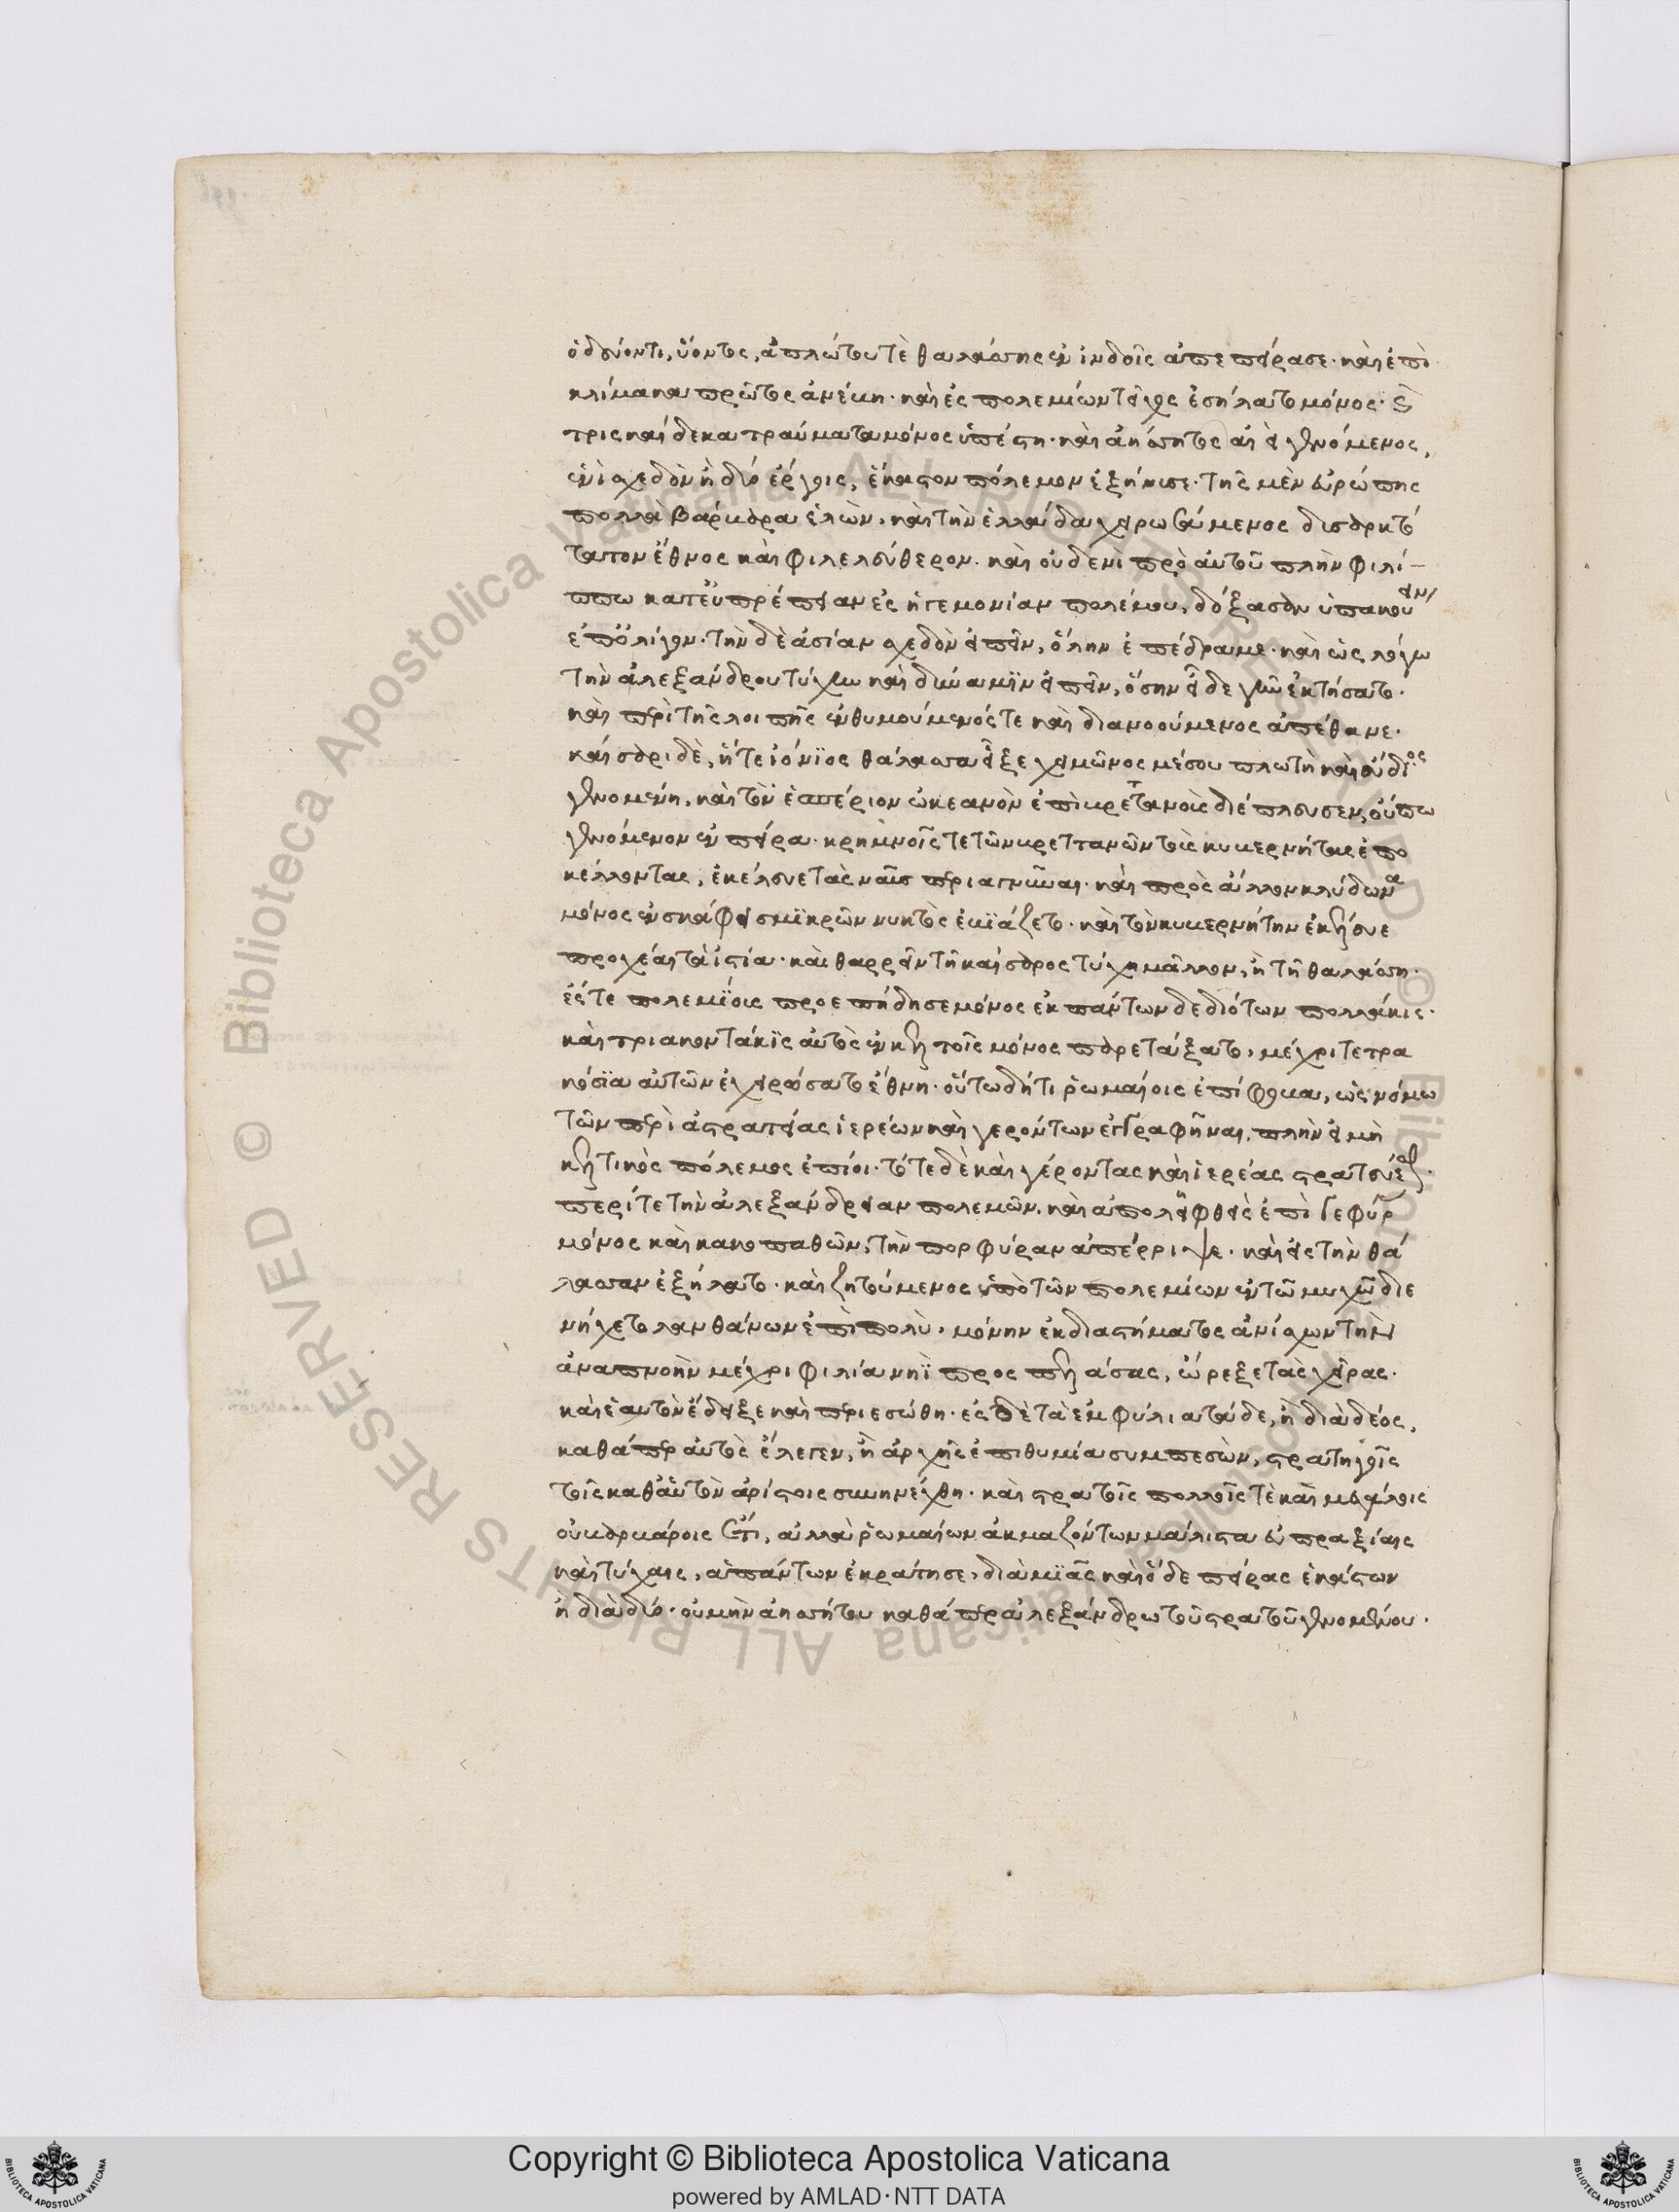 ὁδεύοντι, ὕοντος, ἀπλώτου τὲ θαλάσσης ἐν ἰνδοῖς ἀπεπείρασε· καὶ ἐπὶ
κλίμακα πρῶτος ἀνέβη· καὶ ἐς πολεμίων τεῖχος ἐσήλατο μόνος· καὶ
τρὶς καίδεκα τραύματα μόνος ὑπέστη· καὶ ἀήσσητος αἰεὶ γενόμενος,
ἑνὶ σχεδὸν ἢ δύο ἔργοις, ἕκαστον πόλεμον ἐξήνυσε· τῆς μὲν εὐρώπης
πολλὰ βάρβαρα ἑλὼν, καὶ τὴν ἑλλάδα χειρωσάμενος δυσαρκτό
τατον ἔθνος καὶ φιλελεύθερον. καὶ οὐδενὶ πρὸ αὐτοῦ πλὴν φιλί-
ππω κατ' εὐπρέπειαν ἐς ἡγεμονίαν πολέμου, δόξασαν ὑπακούειν
ἐπ' ὀλίγον· τὴν δὲ ἀσίαν σχεδὸν εἰπεῖν, ὅλην ἐπέδραμε· καὶ ὡς λόγω
τὴν ἀλεξάνδρου τύχην καὶ δύναμϊν εἰπεῖν, ὅσην εἶδε γῆν ἐκτήσατο·
καὶ περὶ τῆς λοιπῆς ἐνθυμούμενός τε καὶ διανοούμενος ἀπέθανε.
καίσαρι δὲ, ἥ τε ἰόνϊος θάλασσα εἶξε χειμῶνος μέσου πλωτὴ καὶ εὔδιος
γενομένη, καὶ τὸν ἑσπέριον ὠκεανὸν ἐπὶ βρεττανοὺς διέπλευσεν, οὔπω
γενόμενον ἐν πείρα· κρημνοῖς τε τῶν βρεττανῶν τοὺς κυβερνήτας ἐπο
κέλλοντας, ἐκέλευε τὰς ναῦς περιαγνύναι· καὶ πρὸς ἄλλον κλύδωνα
μόνος ἐν σκάφει σμϊκρῶ νυκτὸς ἐβϊάζετο· καὶ τὸν κυβερνήτην ἐκέλευε
προχέαι τὰ ἱστία· καὶ θαρρεῖν τῆ καίσαρος τύχη μᾶλλον, ἢ τῆ θαλάσση·
ἔς τε πολεμΐους προεπήδησε μόνος ἐκ πάντων δεδιότων πολλάκις·
καὶ τριακοντάκϊς αὐτὸς ἐν κελτοῖς μόνος παρετάξατο, μέχρι τετρα
κόσϊα αὐτῶν ἐχειρώσατο ἔθνη· οὕτω δή τι ῥωμαίοις ἐπίφοβα, ὡς νόμω
τῶν περὶ ἀστρατείας ἱερέων καὶ γερόντων ἐγγραφῆναι, πλὴν εἰ μὴ
κελτικὸς πόλεμος ἐπίοι· τότε δὲ καὶ γέροντας καὶ ἱερέας στρατεύεσθαι·
περί τε τὴν ἀλεξάνδρειαν πολεμῶν, καὶ ἀποληφθεὶς ἐπὶ γεφύρας
μόνος καὶ κακοπαθῶν, τὴν πορφύραν ἀπέρριψε· καὶ εἰς τὴν θά
λασσαν ἐξήλατο· καὶ ζητούμενος ὑπὸ τῶν πολεμίων ἐν τῶ μυχῶ διε
νήχετο λανθάνων ἐπὶ πολὺ, μόνην ἐκ διαστήματος ἀνίσχων τὴν
ἀναπνοὴν μέχρι φιλία νηῒ προσπελάσας, ὤρεξε τὰς χεῖρας·
καὶ ἑαυτὸν ἔδειξε καὶ περιεσώθη· ἐς δὲ τὰ ἐμφύλια τάδε, ἢ διὰ δέος,
καθάπερ αὐτὸς ἔλεγεν, ἢ ἀρχῆς ἐπιθυμία συμπεσὼν, στρατηγοῖς
τοῖς καθ' αὑτὸν ἀρίστοις συνηνέχθη· καὶ στρατοῖς πολλοῖς τὲ καὶ μεγάλοις
οὐ βαρβάροις ἔτι, ἀλλὰ ῥωμαίων ἀκμαζόντων μάλιστα εὐπραξίαις
καὶ τύχαις, ἁπάντων ἐκράτησε, διὰ μϊᾶς καὶ ὅδε πείρας ἑκάστων
ἢ διὰ δύο· οὐ μὴν ἀησσήτου καθάπερ ἀλεξάνδρω τοῦ στρατοῦ γενομένου·